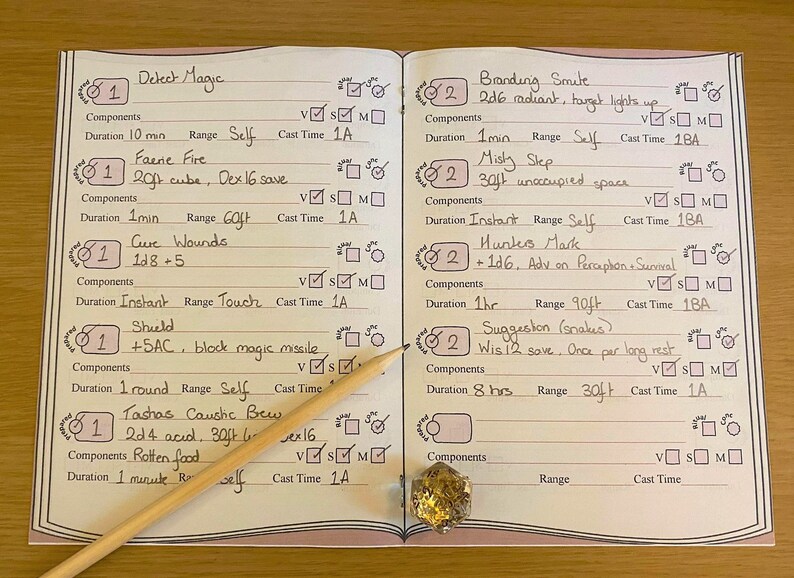 Prepared 1 Detect Magic Ritual Conc
Components V S M
Duration 10 min Range Self Cast Time 1A
Prepared 1 Faerie Fire Ritual Conc
20ft cube, Dex 16 save
Components V S M
Duration 1min Range 60ft Cast Time 1A
Prepared 1 Cure Wounds Ritual Conc
1d8 +5
Components V S M
Duration Instant Range Touch Cast Time 1A
Prepared 1 Shield Ritual Conc
+5AC, block magic missile
Components V S
Duration 1 round Range Self
Prepared 1 Tashas Caustic Brew Ritual Conc
2d4 acid, 30ft Dex16
Components Rotten food V S M
Duration 1 minute Self Cast Time 1A
Prepared 2 Branding Smite Ritual Conc
2d6 radiant, target lights up
Components V S M
Duration 1min Range Self Cast Time 1BA
Prepared 2 Misty Step Ritual Conc
30ft unoccupied space
Components V S M
Duration Instant Range Self Cast Time 1BA
Prepared 2 Hunters Mark Ritual Conc
+1d6, Adv on Perception + Survival
Components V S M
Duration 1hr Range 90ft Cast Time 1BA
Prepared 2 Suggestion (snakes) Ritual Conc
Wis 12 save, Once per long rest
Components V S M
Duration 8 hrs Range 30ft Cast Time 1A
Prepared Ritual Conc
Components V S M
Range Cast Time